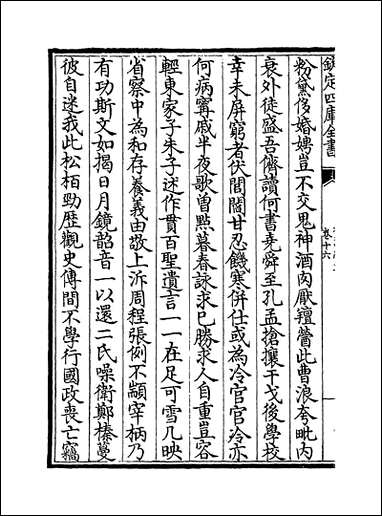 欽定四庫全書
卷十六
粉黛侈婚娉豈不交鬼神酒肉厭羶薌此曹浪夸毗内
衰外徒盛吾儕讀何書堯舜至孔孟搶攘干戈後學校
幸未屏窮者伏閭閻甘忍饑寒併仕或為冷官官冷亦
何病寗戚半夜歌曽㸃暮春詠求已勝求人自重豈容
輕東家子朱子述作貫百聖遺言一一在足可雪几映
省察中為和存養義由敬上泝周程張例不顓宰柄乃
有功斯文如揭日月鏡韶音一以還二氏噪衛鄭榛蔓
彼自迷我此松栢勁歴觀史傳間不學行國政喪亡竊